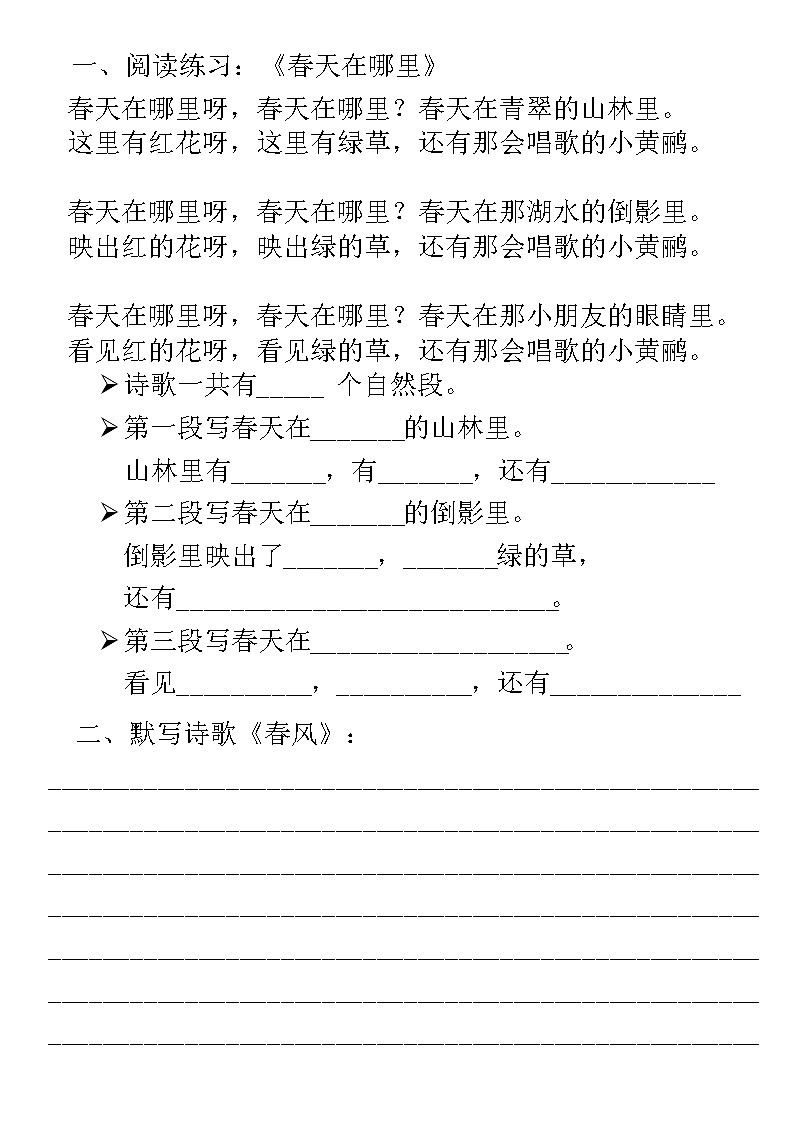 一、阅读练习：《春天在哪里》
春天在哪里呀，春天在哪里？春天在青翠的山林里。
这里有红花呀，这里有绿草，还有那会唱歌的小黄鹂。
春天在哪里呀，春天在哪里？春天在那湖水的倒影里。
映出红的花呀，映出绿的草，还有那会唱歌的小黄鹂。
春天在哪里呀，春天在哪里？春天在那小朋友的眼睛里。
看见红的花呀，看见绿的草，还有那会唱歌的小黄鹂。
➢诗歌一共有_____ 个自然段。
➢第一段写春天在_______的山林里。
山林里有_______，有_______，还有____________
➢第二段写春天在_______的倒影里。
倒影里映出了_______，_______绿的草，
还有____________________________。
➢第三段写春天在___________________。
看见__________，__________，还有______________
二、默写诗歌《春风》：
____________________________________________________
____________________________________________________
____________________________________________________
____________________________________________________
____________________________________________________
____________________________________________________
____________________________________________________